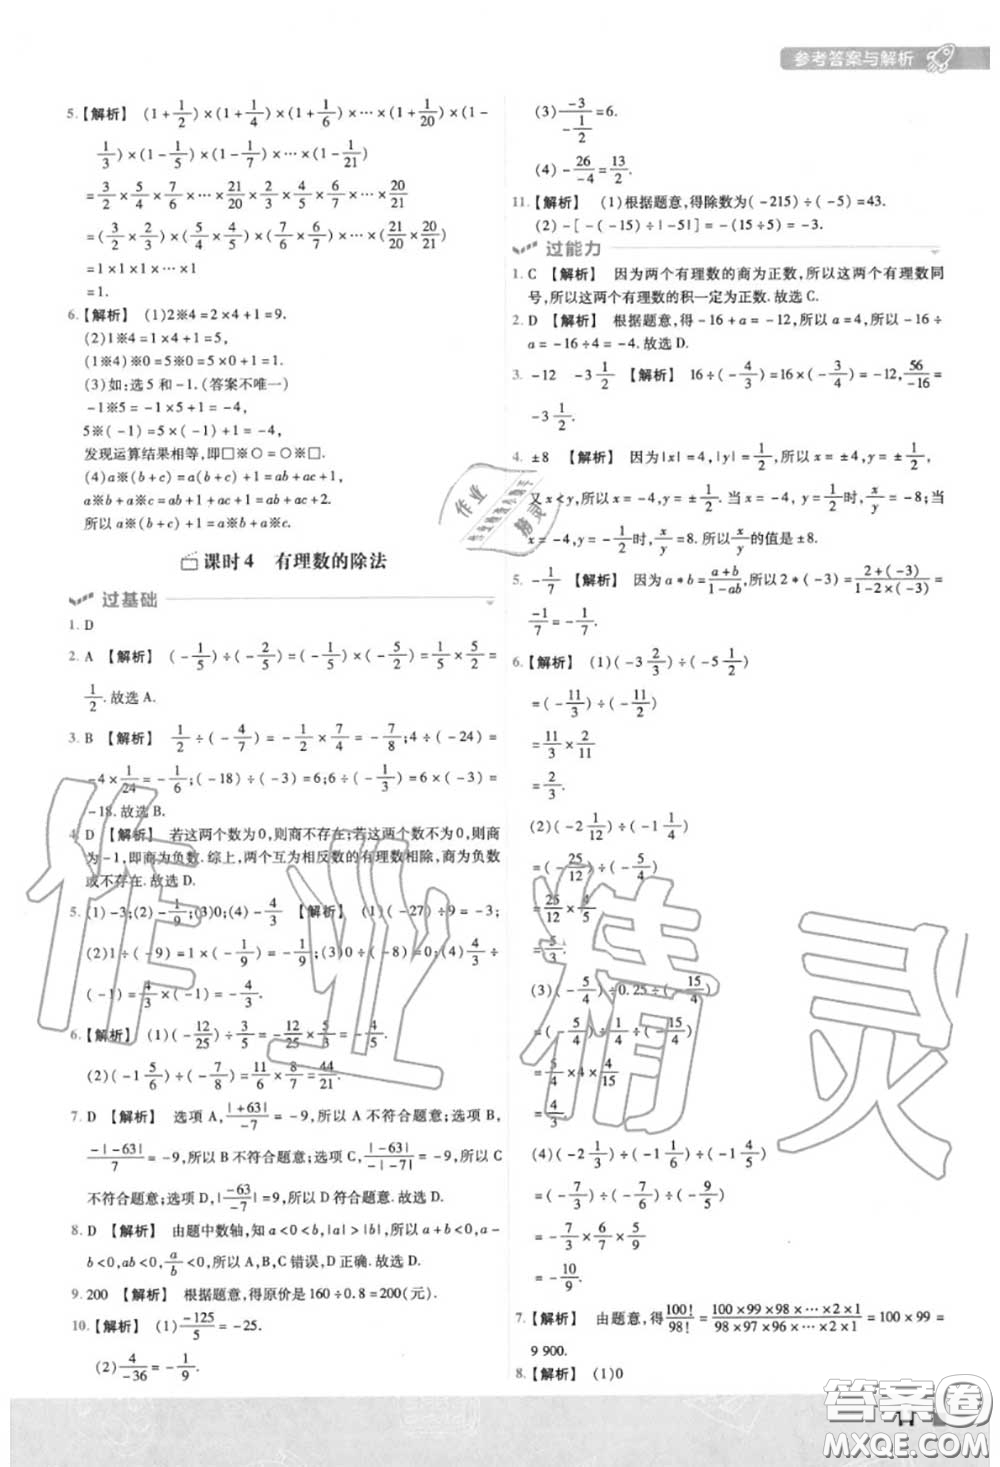 参考答案与解析
5.【解析】 (1+1/2)×(1+1/4)×(1+1/6)×…×(1+1/20)×(1-
1/3)×(1-1/5)×(1-1/7)×…×(1-1/21)
=3/2×5/4×7/6×…×21/20×2/3×4/5×6/7×…×20/21
=(3/2×2/3)×(5/4×4/5)×(7/6×6/7)×…×(21/20×20/21)
=1×1×1×…×1
=1.
6.【解析】 (1)2※4=2×4+1=9.
(2)1※4=1×4+1=5,
(1※4)※0=5※0=5×0+1=1.
(3)如:选5和-1.(答案不唯一)
-1※5=-1×5+1=-4,
5※(-1)=5×(-1)+1=-4,
发现运算结果相等,即□※○=○※□.
(4)a※(b+c)=a(b+c)+1=ab+ac+1,
a※b+a※c=ab+1+ac+1=ab+ac+2.
所以a※(b+c)+1=a※b+a※c.
课时4 有理数的除法
过基础
1. D
2. A 【解析】 (-1/5)÷(-2/5)=(-1/5)×(-5/2)=1/5×5/2=
1/2.故选A.
3. B 【解析】 1/2÷(-4/7)=-1/2×7/4=-7/8;4÷(-24)=
-4×1/24=-1/6;(-18)÷(-3)=6;6÷(-1/3)=6×(-3)=
-18.故选B.
4. D 【解析】 若这两个数为0,则商不存在;若这两个数不为0,则商
为-1,即商为负数.综上,两个互为相反数的有理数相除,商为负数
或不存在.故选D.
5. (1)-3;(2)-1/9;(3)0;(4)-4/3 【解析】 (1)(-27)÷9=-3;
(2)1÷(-9)=1×(-1/9)=-1/9;(3)0÷(-2)=0;(4)4/3÷
(-1)=4/3×(-1)=-4/3.
6.【解析】 (1)(-12/25)÷3/5=-12/25×5/3=-4/5.
(2)(-1 5/6)÷(-7/8)=11/6×8/7=44/21.
7. D 【解析】 选项A,|+63|/-7=-9,所以A不符合题意;选项B,
-|-63|/7=-9,所以B不符合题意;选项C,|-63|/-|-7|=-9,所以C
不符合题意;选项D,|-63/-7|=9,所以D符合题意.故选D.
8. D 【解析】 由题中数轴,知a<0<b,|a|>|b|,所以a+b<0,a-
b<0,ab<0,a/b<0,所以A,B,C错误,D正确.故选D.
9. 200 【解析】 根据题意,得原价是160÷0.8=200(元).
10.【解析】 (1)-125/5=-25.
(2)4/-36=-1/9.
(3)-3/-1/2=6.
(4)-26/-4=13/2.
11.【解析】 (1)根据题意,得除数为(-215)÷(-5)=43.
(2)-[-(-15)÷|-5|]=-(15÷5)=-3.
过能力
1. C 【解析】 因为两个有理数的商为正数,所以这两个有理数同
号,所以这两个有理数的积一定为正数.故选C.
2. D 【解析】 根据题意,得-16+a=-12,所以a=4,所以-16÷
a=-16÷4=-4.故选D.
3. -12 -3 1/2 【解析】 16÷(-4/3)=16×(-3/4)=-12,56/-16=
-3 1/2.
4. ±8 【解析】 因为|x|=4,|y|=1/2,所以x=±4,y=±1/2,
又x<y,所以x=-4,y=±1/2.当x=-4,y=1/2时,x/y=-8;当
x=-4,y=-1/2时,x/y=8.所以x/y的值是±8.
5. -1/7 【解析】 因为a*b=a+b/1-ab,所以2*(-3)=2+(-3)/1-2×(-3)=
-1/7=-1/7.
6.【解析】 (1)(-3 2/3)÷(-5 1/2)
=(-11/3)÷(-11/2)
=11/3×2/11
=2/3.
(2)(-2 1/12)÷(-1 1/4)
=(-25/12)÷(-5/4)
=25/12×4/5
=5/3.
(3)(-5/4)÷0.25÷(-15/4)
=(-5/4)÷1/4÷(-15/4)
=5/4×4×4/15
=4/3.
(4)(-2 1/3)÷(-1 1/6)÷(-1 4/5)
=(-7/3)÷(-7/6)÷(-9/5)
=-7/3×6/7×5/9
=-10/9.
7.【解析】 由题意,得100!/98!=100×99×98×…×2×1/98×97×96×…×2×1=100×99=
9 900.
8.【解析】 (1)0
11
作业精灵
作业
精灵
答案圈
MXQE.COM